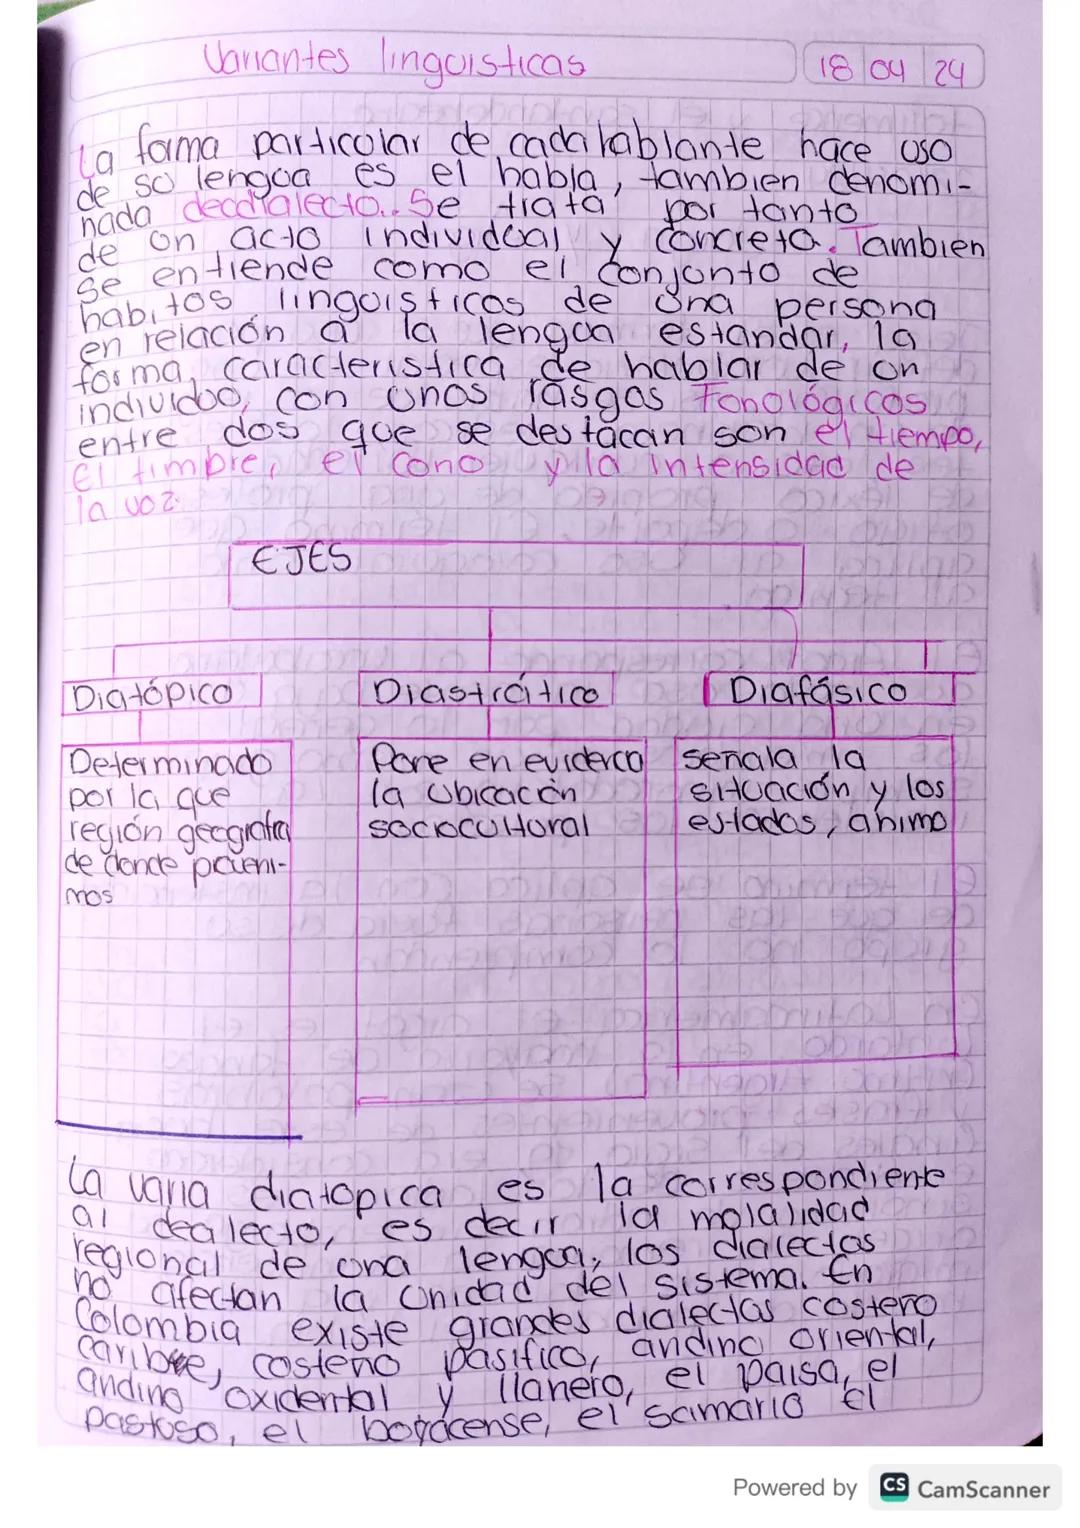 Variantes lingüisticas
18 04 24
La forma particular de cada hablante hace uso
de su lengua es el habla, tambien denomi-
nada decdialecto. Se trata por tanto
de un acto individual y concreto. Tambien
se entiende como el conjunto de
habitos linguisticos de una persona
en relación a la lengua estandar, la
forma caracteristica de hablar de un
individuo, con unos rasgos Fonológicos
entre dos que se destacan son el tiempo,
El timbre, el cono y la intensidad de
la voz.
EJES
Diatópico
Diastrático
Diafásico
Determinado
por la que
región geografa
de donde proveni-
mos
Pone en evidenca
la ubicación
sociocultural
señala la
situación y los
estados, animo
La varia diatopica es la correspondiente
al dealecto, es decir la molalidad
regional de una lengua, los dialectos
no afectan la unidad del sistema. En
Colombia existe grandes dialectos costeño
caribe, costeño pasifico, andino oriental,
andino oxidental y llanero, el paisa, el
pastuso, el boyacense, el samario El
Powered by CS CamScanner